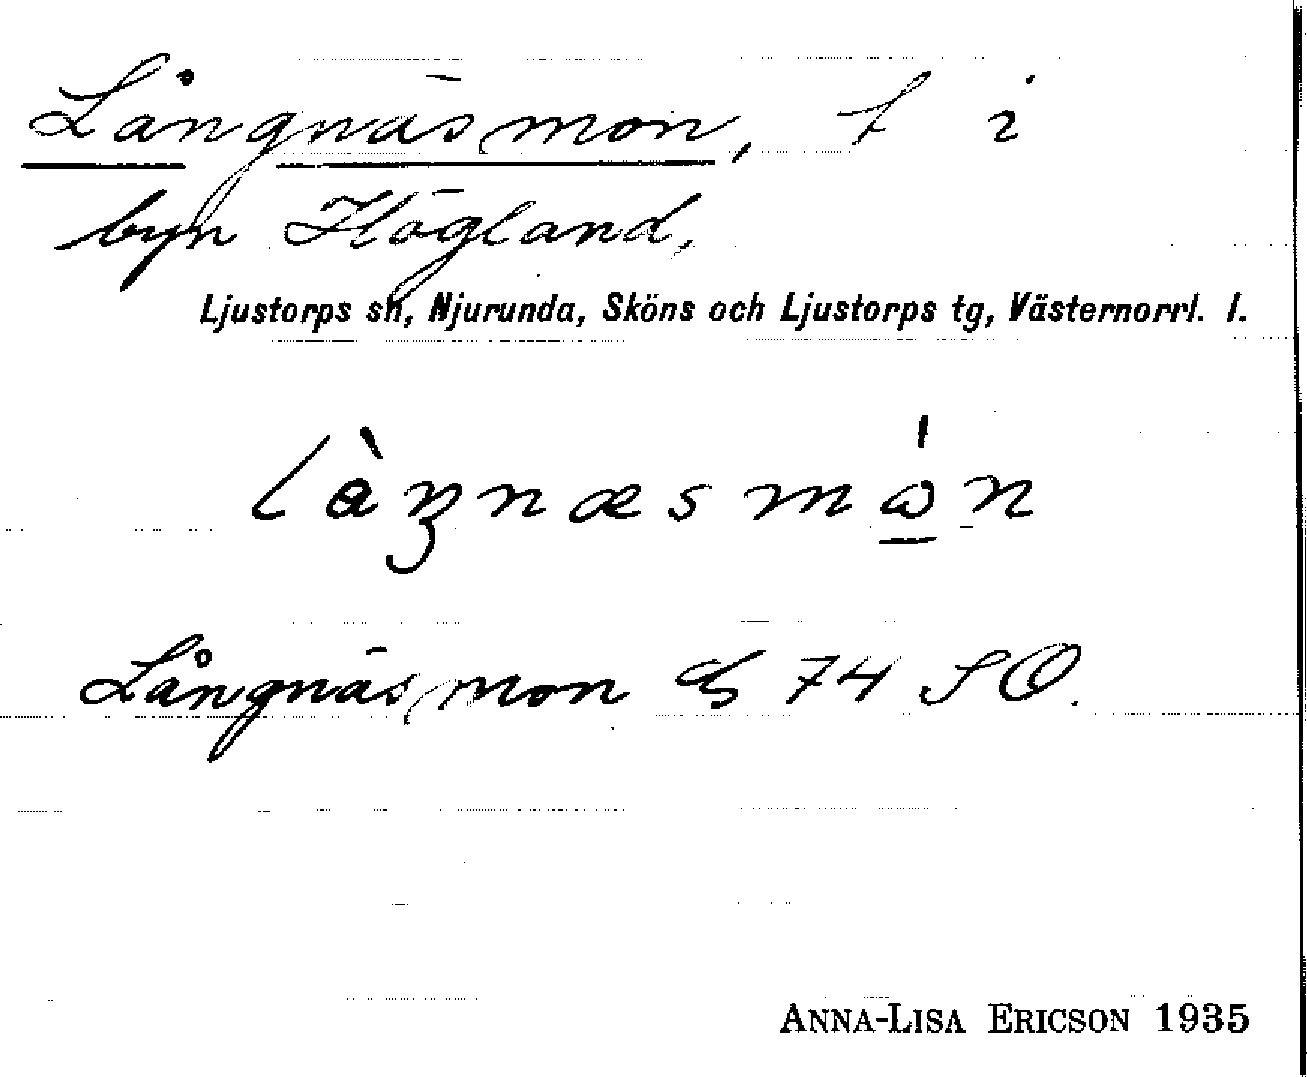 Långnäsmon, t i
byn Högland,
Ljustorps sn, Njurunda, Sköns och Ljustorps tg, Västernorrl. l.
Långnäsmon 74 SO.
ANNA-LISA ERICSON 1935